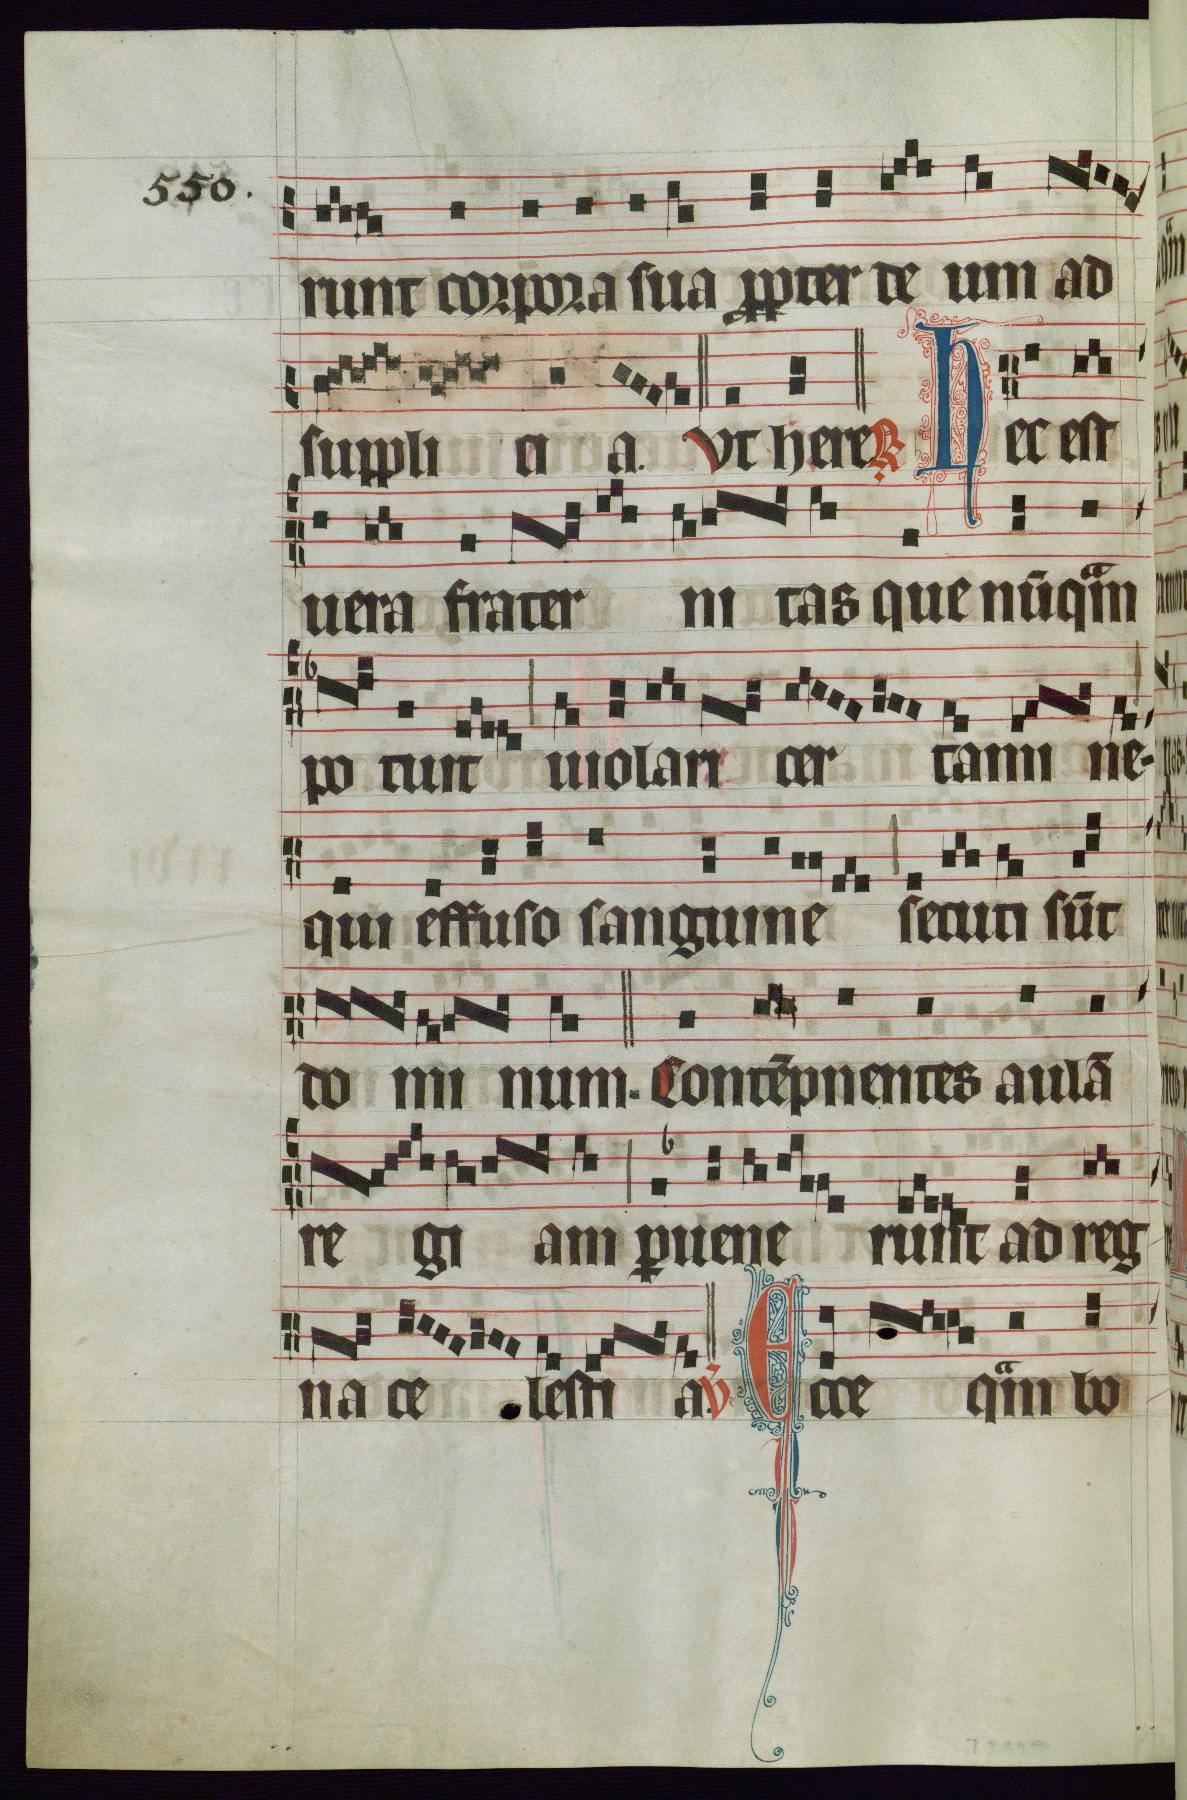 550.
runt corpora sua ꝓpter de um ad
suppli ci a. Vt here ℟ Hec est
uera frater ni tas que nūqᵃm
po tuit uiolari cer tami ne-
qui effuso sanguine secuti sūt
do mi num. Contēpnentes aulā
re gi am ꝑuene runt ad reg
na ce lesti a. ℣ Ecce qᵃm bo